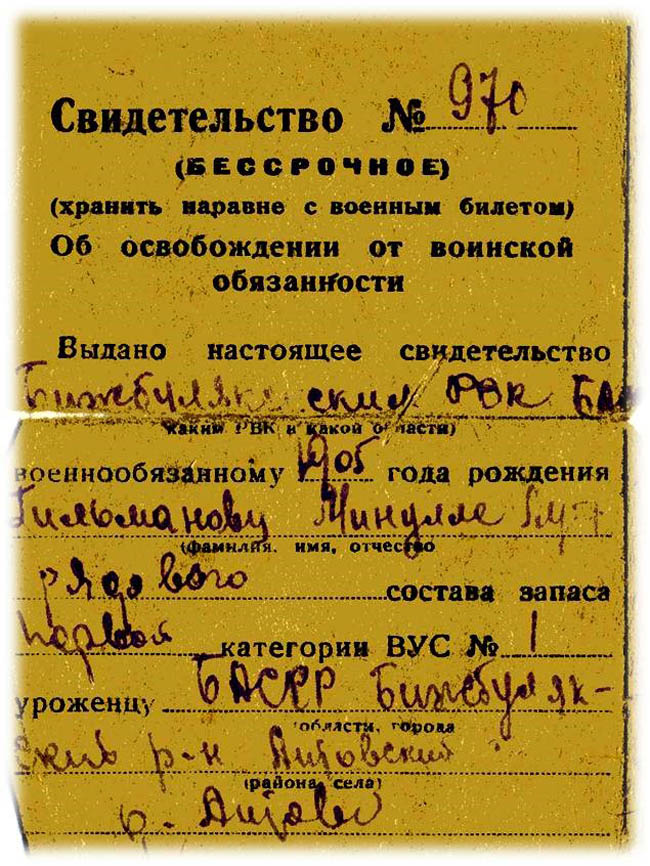 Свидетельство № 970
(БЕССРОЧНОЕ)
(хранить наравне с военным билетом)
Об освобождении от воинской
обязанности
Выдано настоящее свидетельство
Бижбулякским РВК
(каким РВК и какой области)
военнообязанному 1905 года рождения
Гильманову Минулле
(фамилия, имя, отчество
рядового состава запаса
первой категории ВУС № 1
уроженцу БАССР Бижбуляк-
области, города
ский р-н
(района, села)